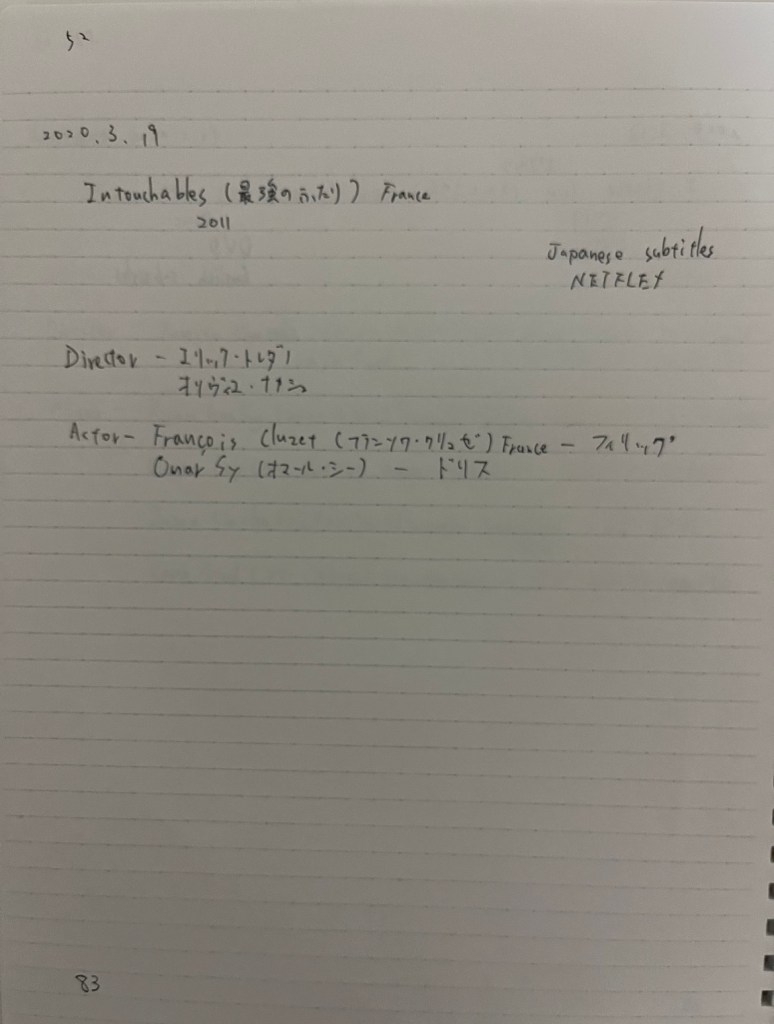 52
2020.3.19
Intouchables (最強のふたり) France
2011
Japanese subtitles
NETFLEX
Director - エリック・トレダノ
オリヴィエ・ナカシュ
Actor - François Cluzet (フランソワ・クリュゼ) France - フィリップ
Omar Sy (オマール・シー) - ドリス
83